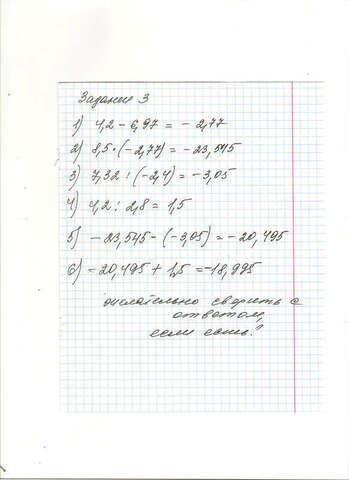 Задание 3
1) 4,2 - 6,97 = - 2,77
2) 8,5 · (-2,77) = -23,545
3) 7,32 : (-2,4) = -3,05
4) 4,2 : 2,8 = 1,5
5) -23,545 - (-3,05) = -20,495
6) -20,495 + 1,5 = -18,995
желательно сверить с
ответом,
если есть!